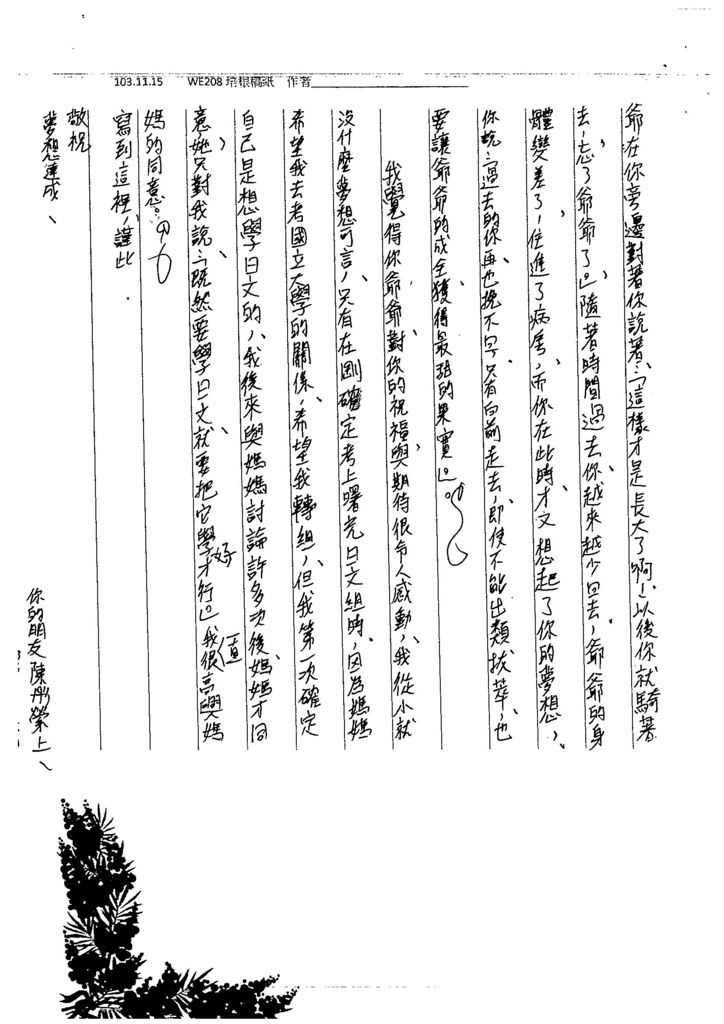 103.11.15 WE208 培根稿紙 作者
爺在你旁邊對著你說著:「這樣才是長大了啊!以後你就騎著
去,忘了爺爺了。」隨著時間過去、你越來越少回去,爺爺的身
體變差了,住進了病房,而你在此時才又想起了你的夢想,
你說:「過去的你再也挽不回、只有向前走去,即使不能出類拔萃、也
要讓爺爺的成全獲得最甜的果實。」
我覺得你爺爺對你的祝福與期待很令人感動,我從小就
沒什麼夢想可言,只有在剛確定考上曙光日文組時,因為媽媽
希望我去考國立大學的關係,希望我轉組,但我第一次確定
自己是想學日文的,我後來與媽媽討論許多次後、媽媽才同
意,她只對我說:「既然要學日文、就要把它學好才行。」我一直很高興媽
媽的同意。
寫到這裡,謹此.
敬祝
夢想達成、
你的朋友 陳彤縈上